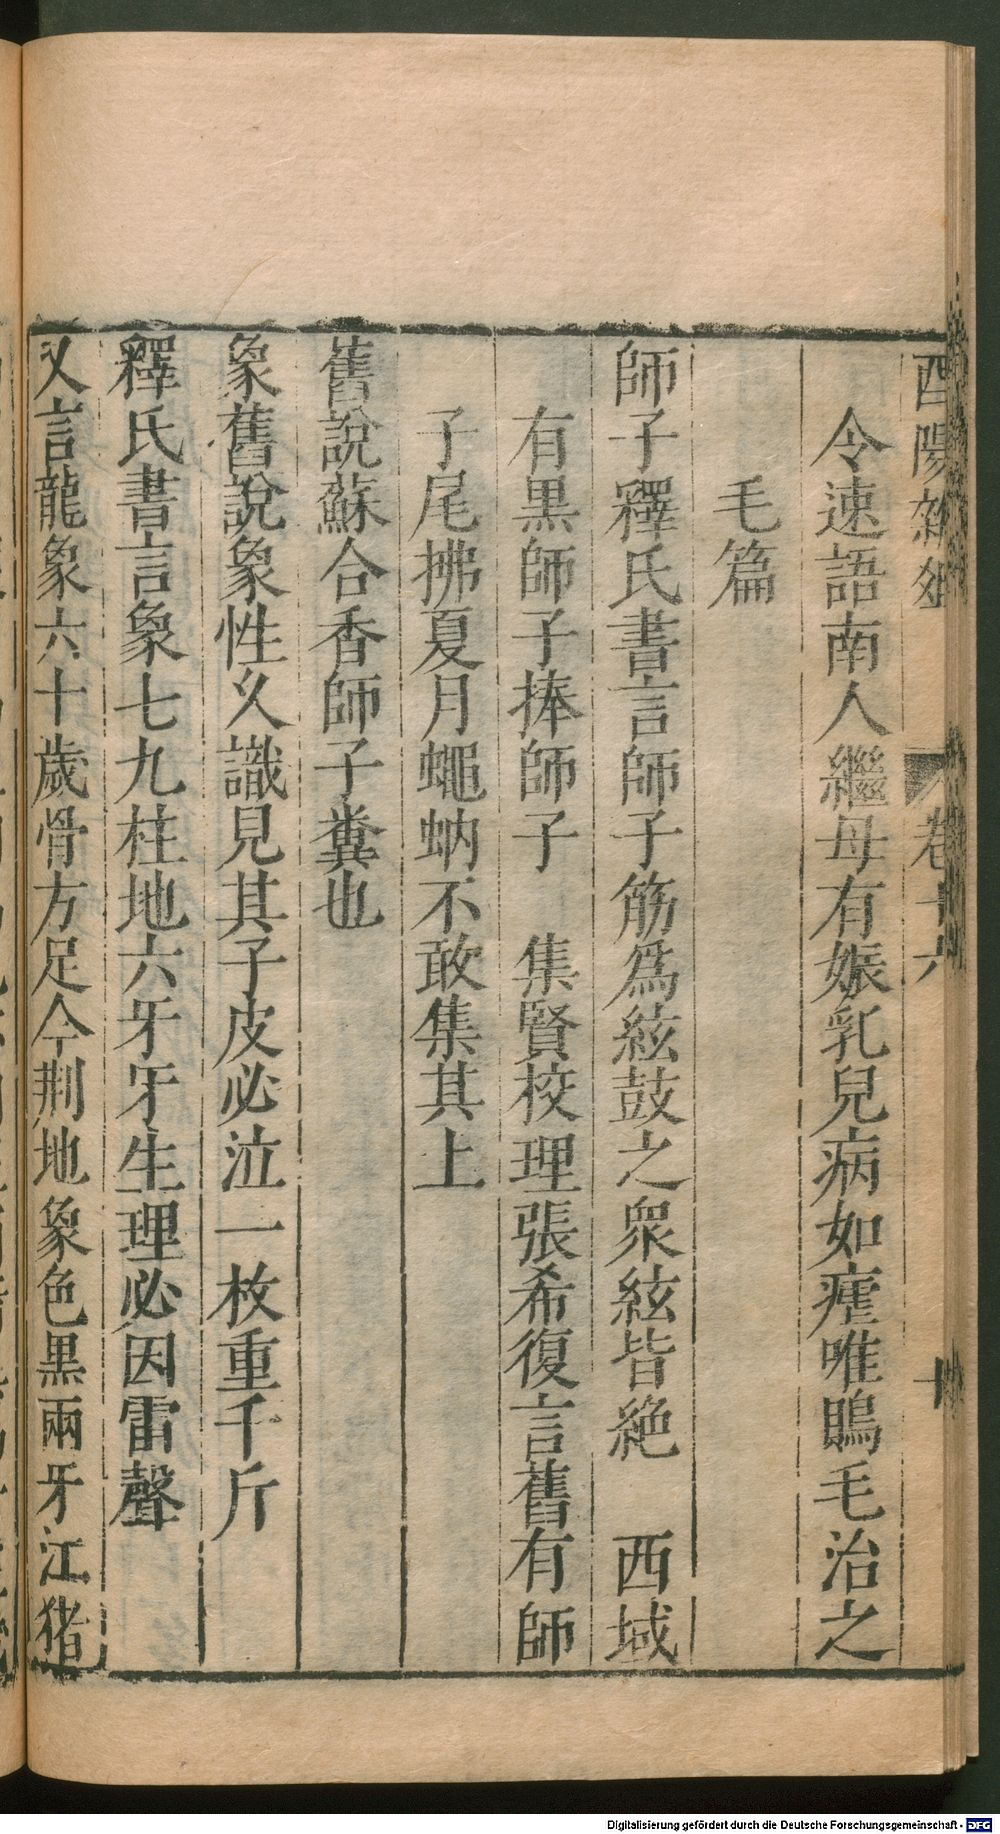 酉陽雜俎 卷十六 十
令速語南人繼母有娠乳兒病如瘧唯鵙毛治之
毛篇
師子釋氏書言師子筋為絃鼓之衆絃皆絕　西域
有黒師子捧師子　集賢校理張希復言舊有師
子尾拂夏月蠅蚋不敢集其上
舊說蘇合香師子糞也
象舊說象性久識見其子皮必泣一枚重千斤
釋氏書言象七九柱地六牙牙生理必因雷聲
又言龍象六十歲骨方足今荆地象色黒兩牙江猪
Digitalisierung gefördert durch die Deutsche Forschungsgemeinschaft - DFG